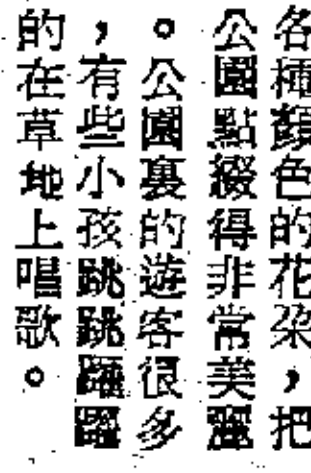 各種顏色的花朵，把
公園點綴得非常美麗
。公園裏的遊客很多
，有些小孩跳跳躍躍
的在草地上唱歌。